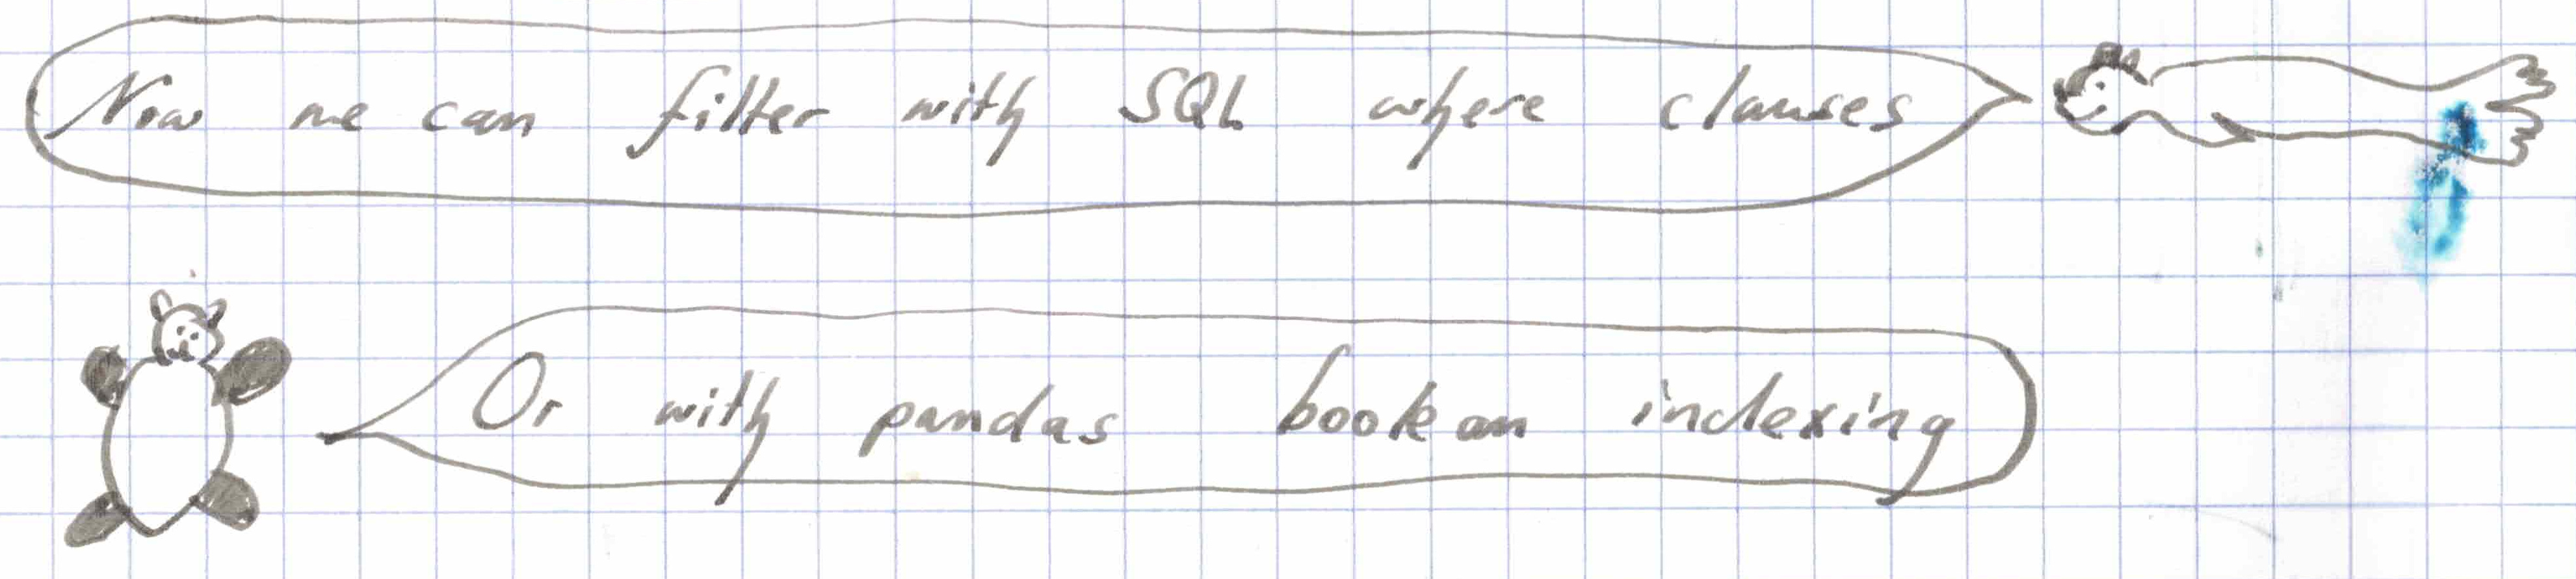 Now we can filter with SQL where clauses
Or with pandas boolean indexing